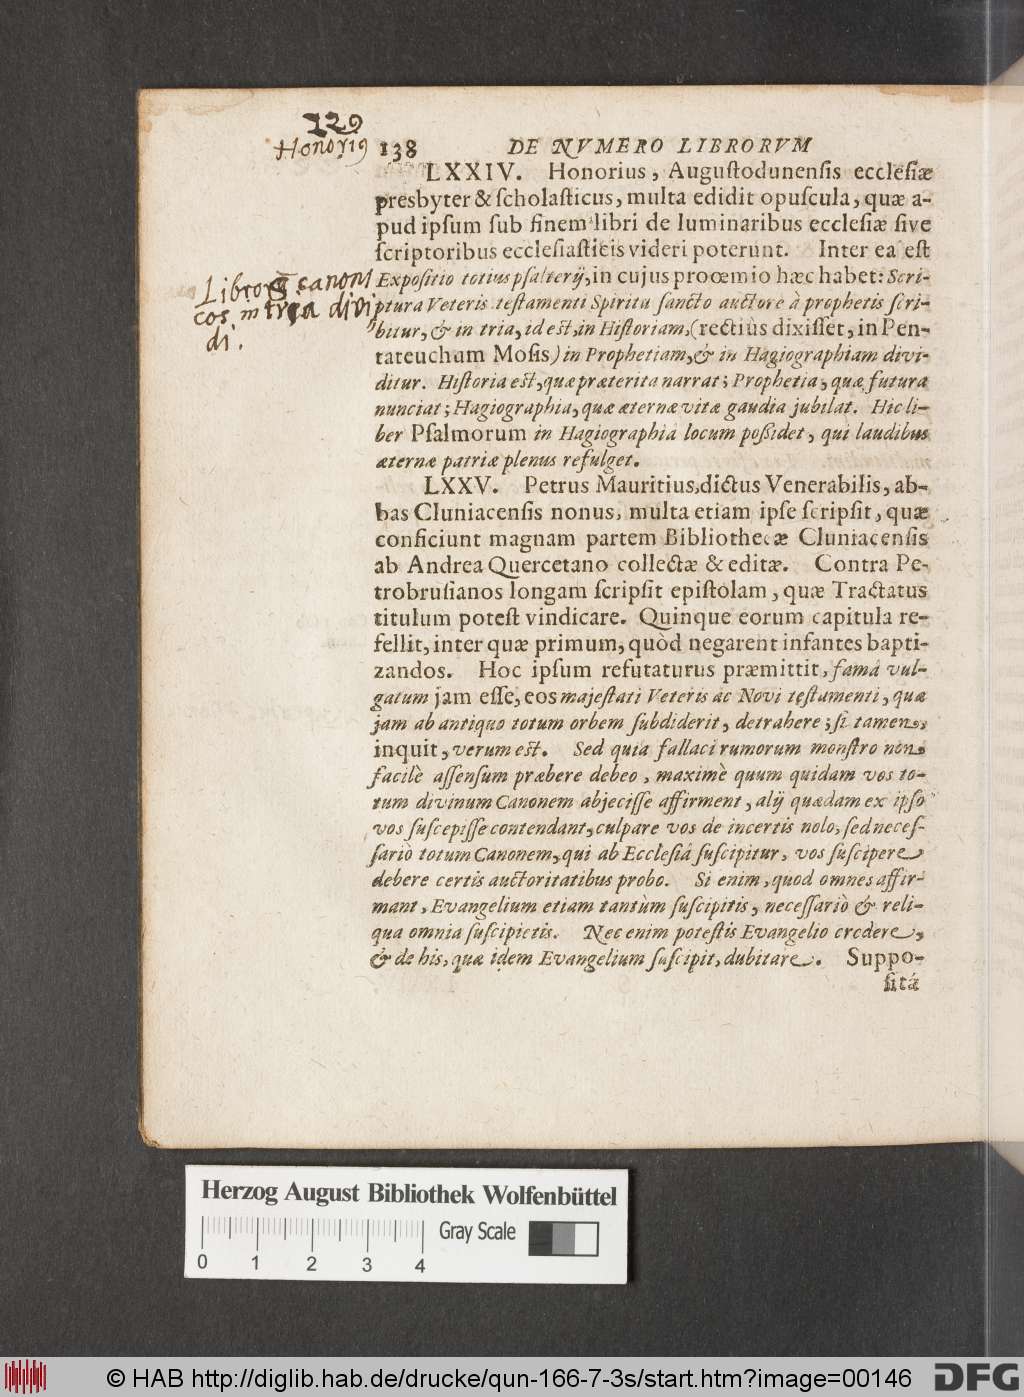 129
Honori9
138 DE NVMERO LIBRORVM
LXXIV. Honorius, Augustodunensis ecclesiæ
presbyter & scholasticus, multa edidit opuscula, quæ a-
pud ipsum sub finem libri de luminaribus ecclesiæ sive
scriptoribus ecclesiasticis videri poterunt. Inter ea est
Expositio totius psalterij, in cujus procœmio hæc habet: Scri-
ptura Veteris testamenti Spiritu sancto auctore à prophetis scri-
bitur, & in tria, id est, in Historiam, (rectiùs dixisset, in Pen-
tateuchum Mosis) in Prophetiam, & in Hagiographiam divi-
ditur. Historia est, quæ præterita narrat; Prophetia, quæ futura
nunciat; Hagiographia, quæ æternæ vitæ gaudia jubilat. Hic li-
ber Psalmorum in Hagiographiâ locum possidet, qui laudibus
æternæ patriæ plenus refulget.
Libror canoni
cos in tria divi
di.
LXXV. Petrus Mauritius, dictus Venerabilis, ab-
bas Cluniacensis nonus, multa etiam ipse scripsit, quæ
conficiunt magnam partem Bibliothecæ Cluniacensis
ab Andrea Quercetano collectæ & editæ. Contra Pe-
trobrusianos longam scripsit epistolam, quæ Tractatus
titulum potest vindicare. Quinque eorum capitula re-
fellit, inter quæ primum, quòd negarent infantes bapti-
zandos. Hoc ipsum refutaturus præmittit, famâ vul-
gatum jam esse, eos majestati Veteris ac Novi testamenti, quæ
jam ab antiquo totum orbem subdiderit, detrahere; si tamen,
inquit, verum est. Sed quia fallaci rumorum monstro non
facilè assensum præbere debeo, maximè quum quidam vos to-
tum divinum Canonem abjecisse affirment, alij quædam ex ipso
vos suscepisse contendant, culpare vos de incertis nolo, sed neces-
sariò totum Canonem, qui ab Ecclesiâ suscipitur, vos suscipere
debere certis auctoritatibus probo. Si enim, quod omnes affir-
mant, Evangelium etiam tantùm suscipitis, necessariò & reli-
qua omnia suscipietis. Nec enim potestis Evangelio credere,
& de his, quæ idem Evangelium suscipit, dubitare. Suppo-
sitâ
Herzog August Bibliothek Wolfenbüttel
Gray Scale
0 1 2 3 4
© HAB http://diglib.hab.de/drucke/qun-166-7-3s/start.htm?image=00146
DFG